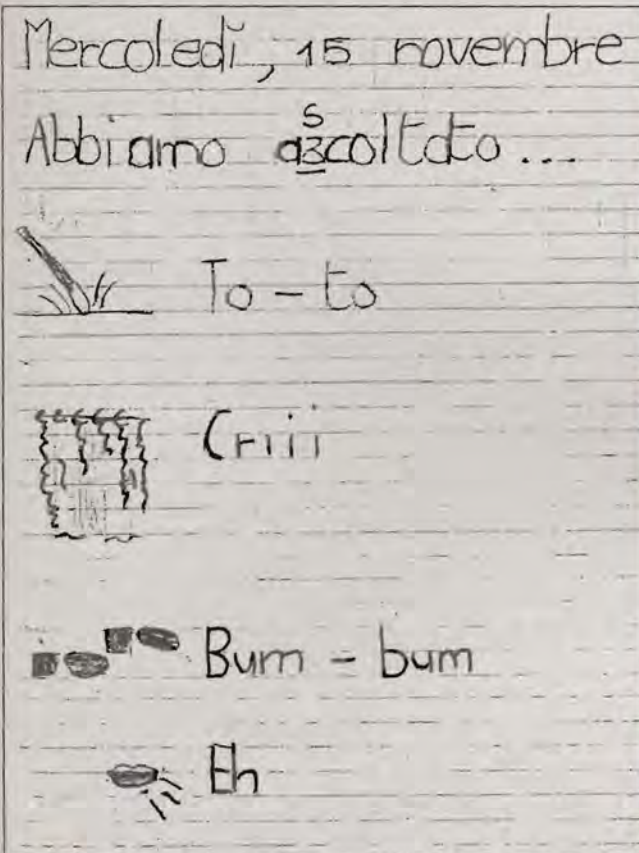 Mercoledì, 15 novembre
Abbiamo azscoltato...
To - to
Criii
Bum - bum
Eh